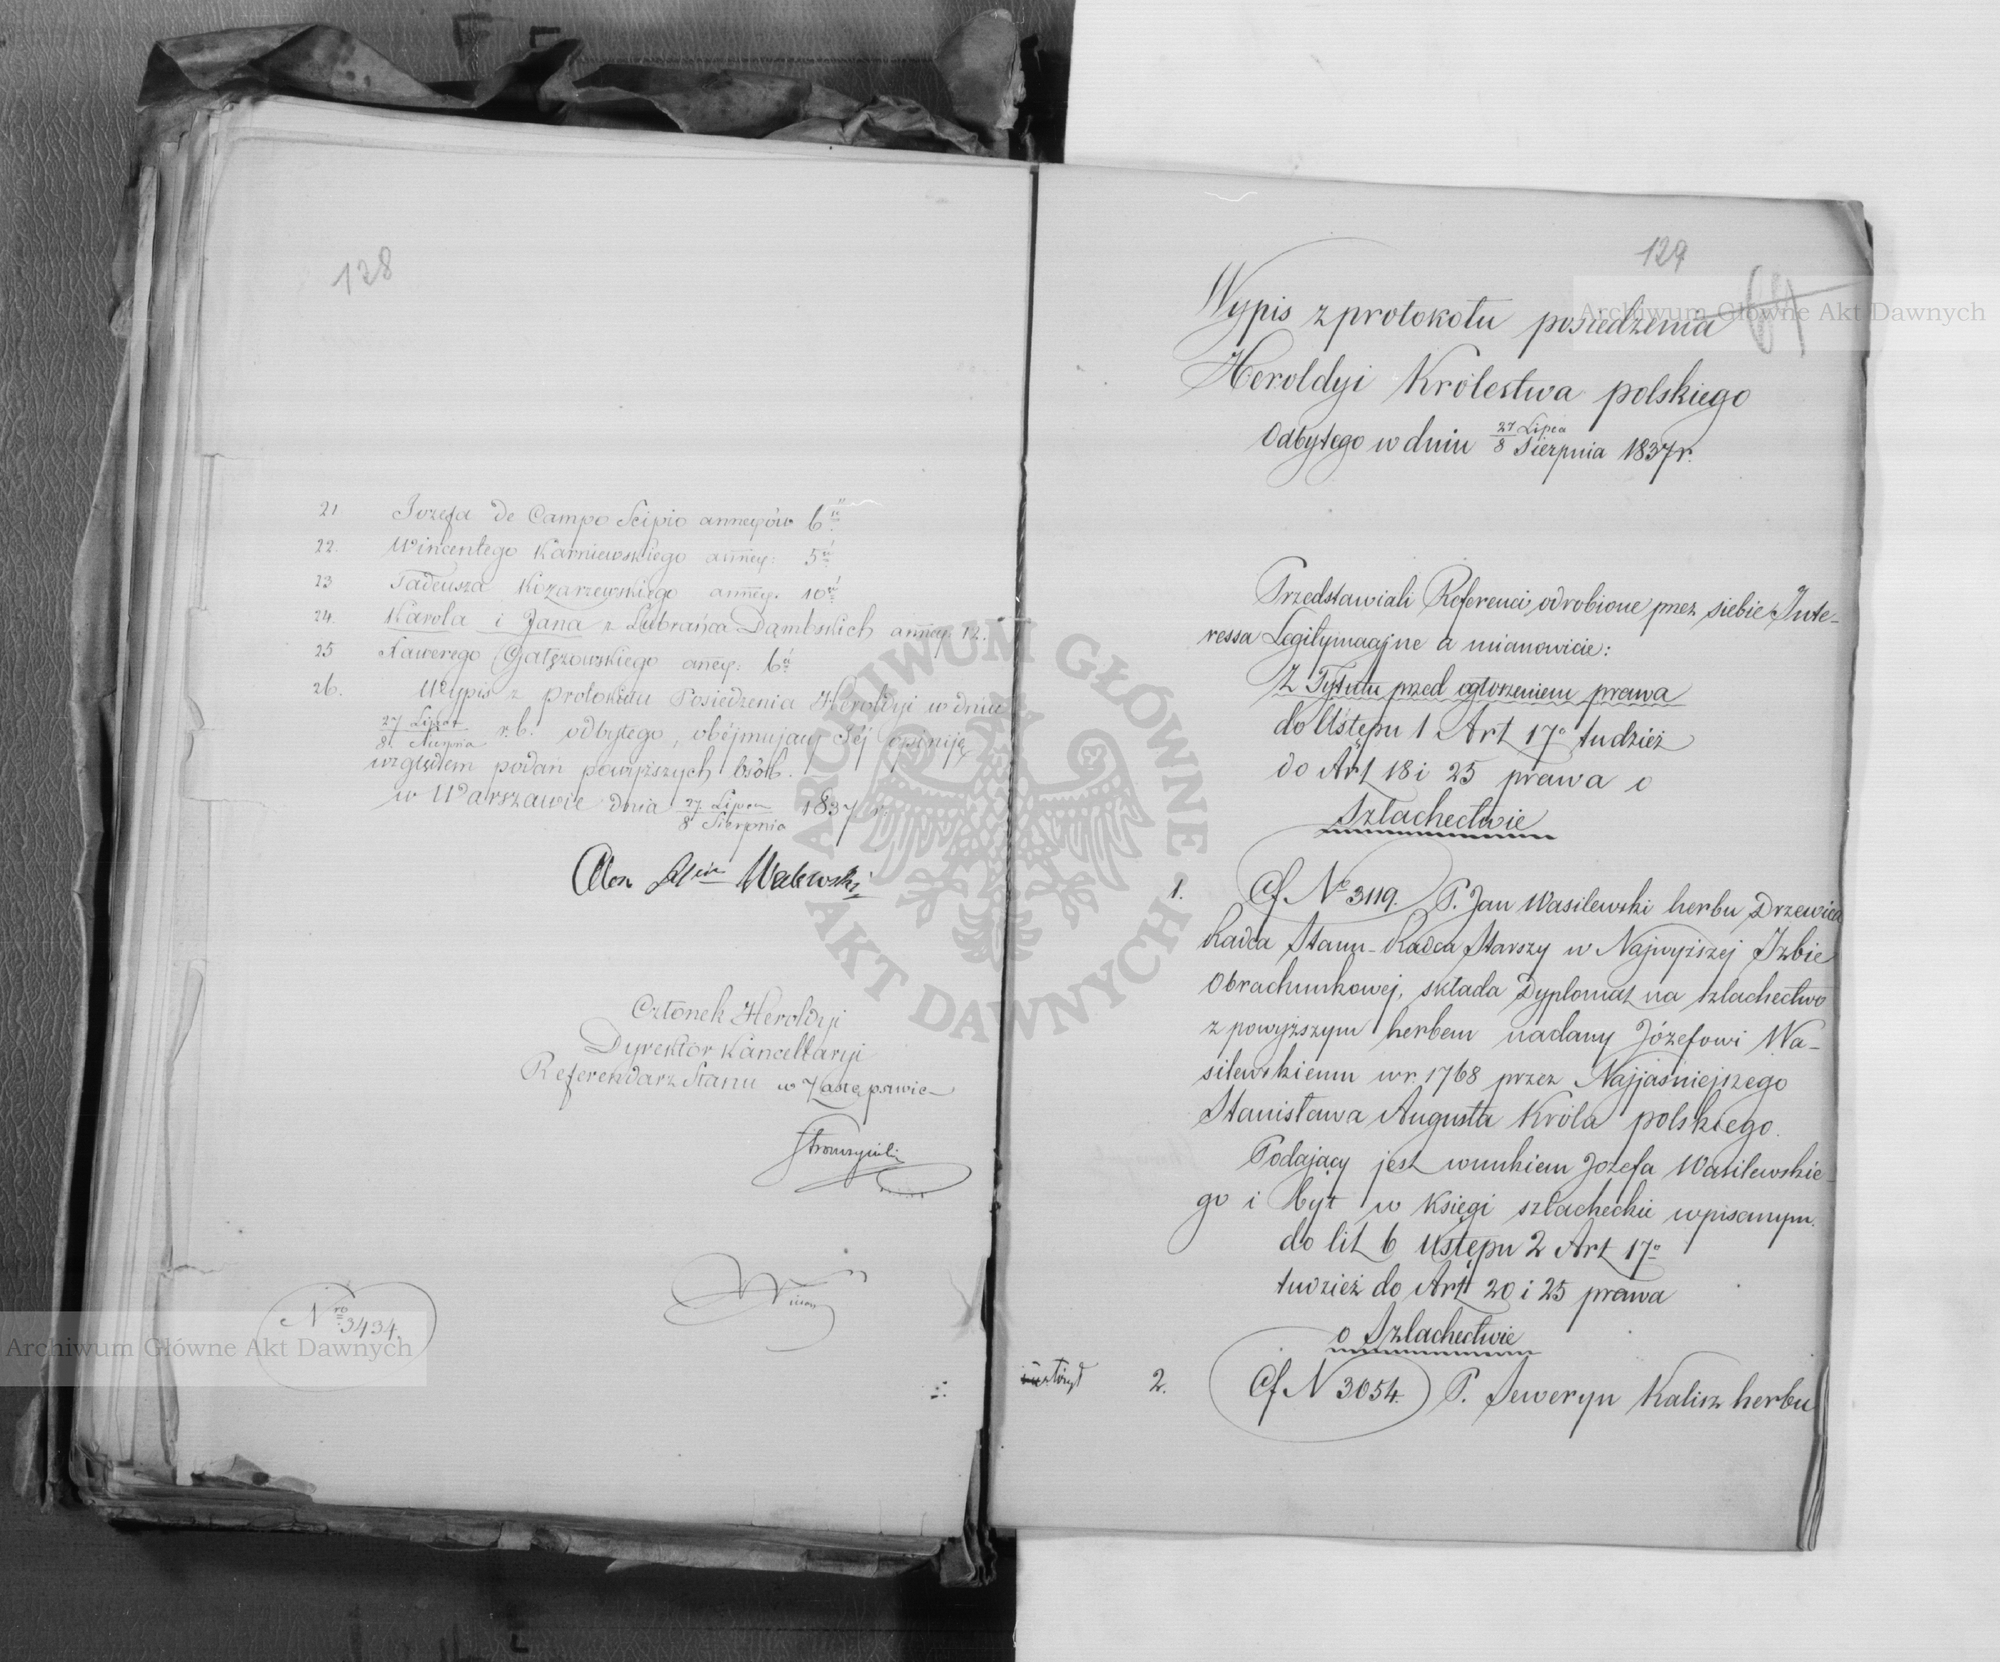 128
21 Jozefa de Campo Scipio annexów 6
22. Wincentego Karniewskiego annex: 5
23 Tadeusza Kozarzewskiego annex. 10
24. Karola i Jana z Lubrańca Dąmbskich annex. 12.
25 Xawerego Gałęzowskiego anex: 6
26. Wypis z protokółu Posiedzenia Heroldyi w dniu
27 Lipca
8 Sierpnia r.b. odbytego, obéjmujący Jéj opiniję
względem podań powyższych Osób.
w Warszawie dnia 27 Lipca 1837 r.
8 Sierpnia
Walewski
Członek Heroldyi
Dyrektor Kancellaryi
Referendarz Stanu w Zastępstwie
Nro 3434.
129
Wypis z protokołu posiedzenia
Heroldyi Królestwa polskiego
Odbytego w dniu 27 Lipca
8 Sierpnia 1837 r.
Przedstawiali Referenci odrobione przez siebie Inte-
ressa Legitymacyjne a mianowicie:
Z Tytułu przed ogłoszeniem prawa
do Ustępu 1 Art 17o tudzież
do Art 18 i 25 prawa o
Szlachectwie
1. Cf No 3119. P. Jan Wasilewski herbu Drzewica
Radca Stanu - Radca Starszy w Najwyższej Izbie
Obrachunkowej, składa Dyplomat na szlachectwo
z powyższym herbem nadany Józefowi Wa-
silewskiemu w r. 1768 przez Najjaśniejszego
Stanisława Augusta Króla polskiego.
Podający jest wnukiem Jozefa Wasilewskie-
go i był w Księgi szlacheckie wpisanym.
do lit b Ustępu 2 Art 17o
tudzież do Art 20 i 25 prawa
o Szlachectwie
2. Cf N 3054. P. Seweryn Kalisz herbu
Archiwum Główne Akt Dawnych
Archiwum Główne Akt Dawnych
ARCHIWUM GŁÓWNE AKT DAWNYCH